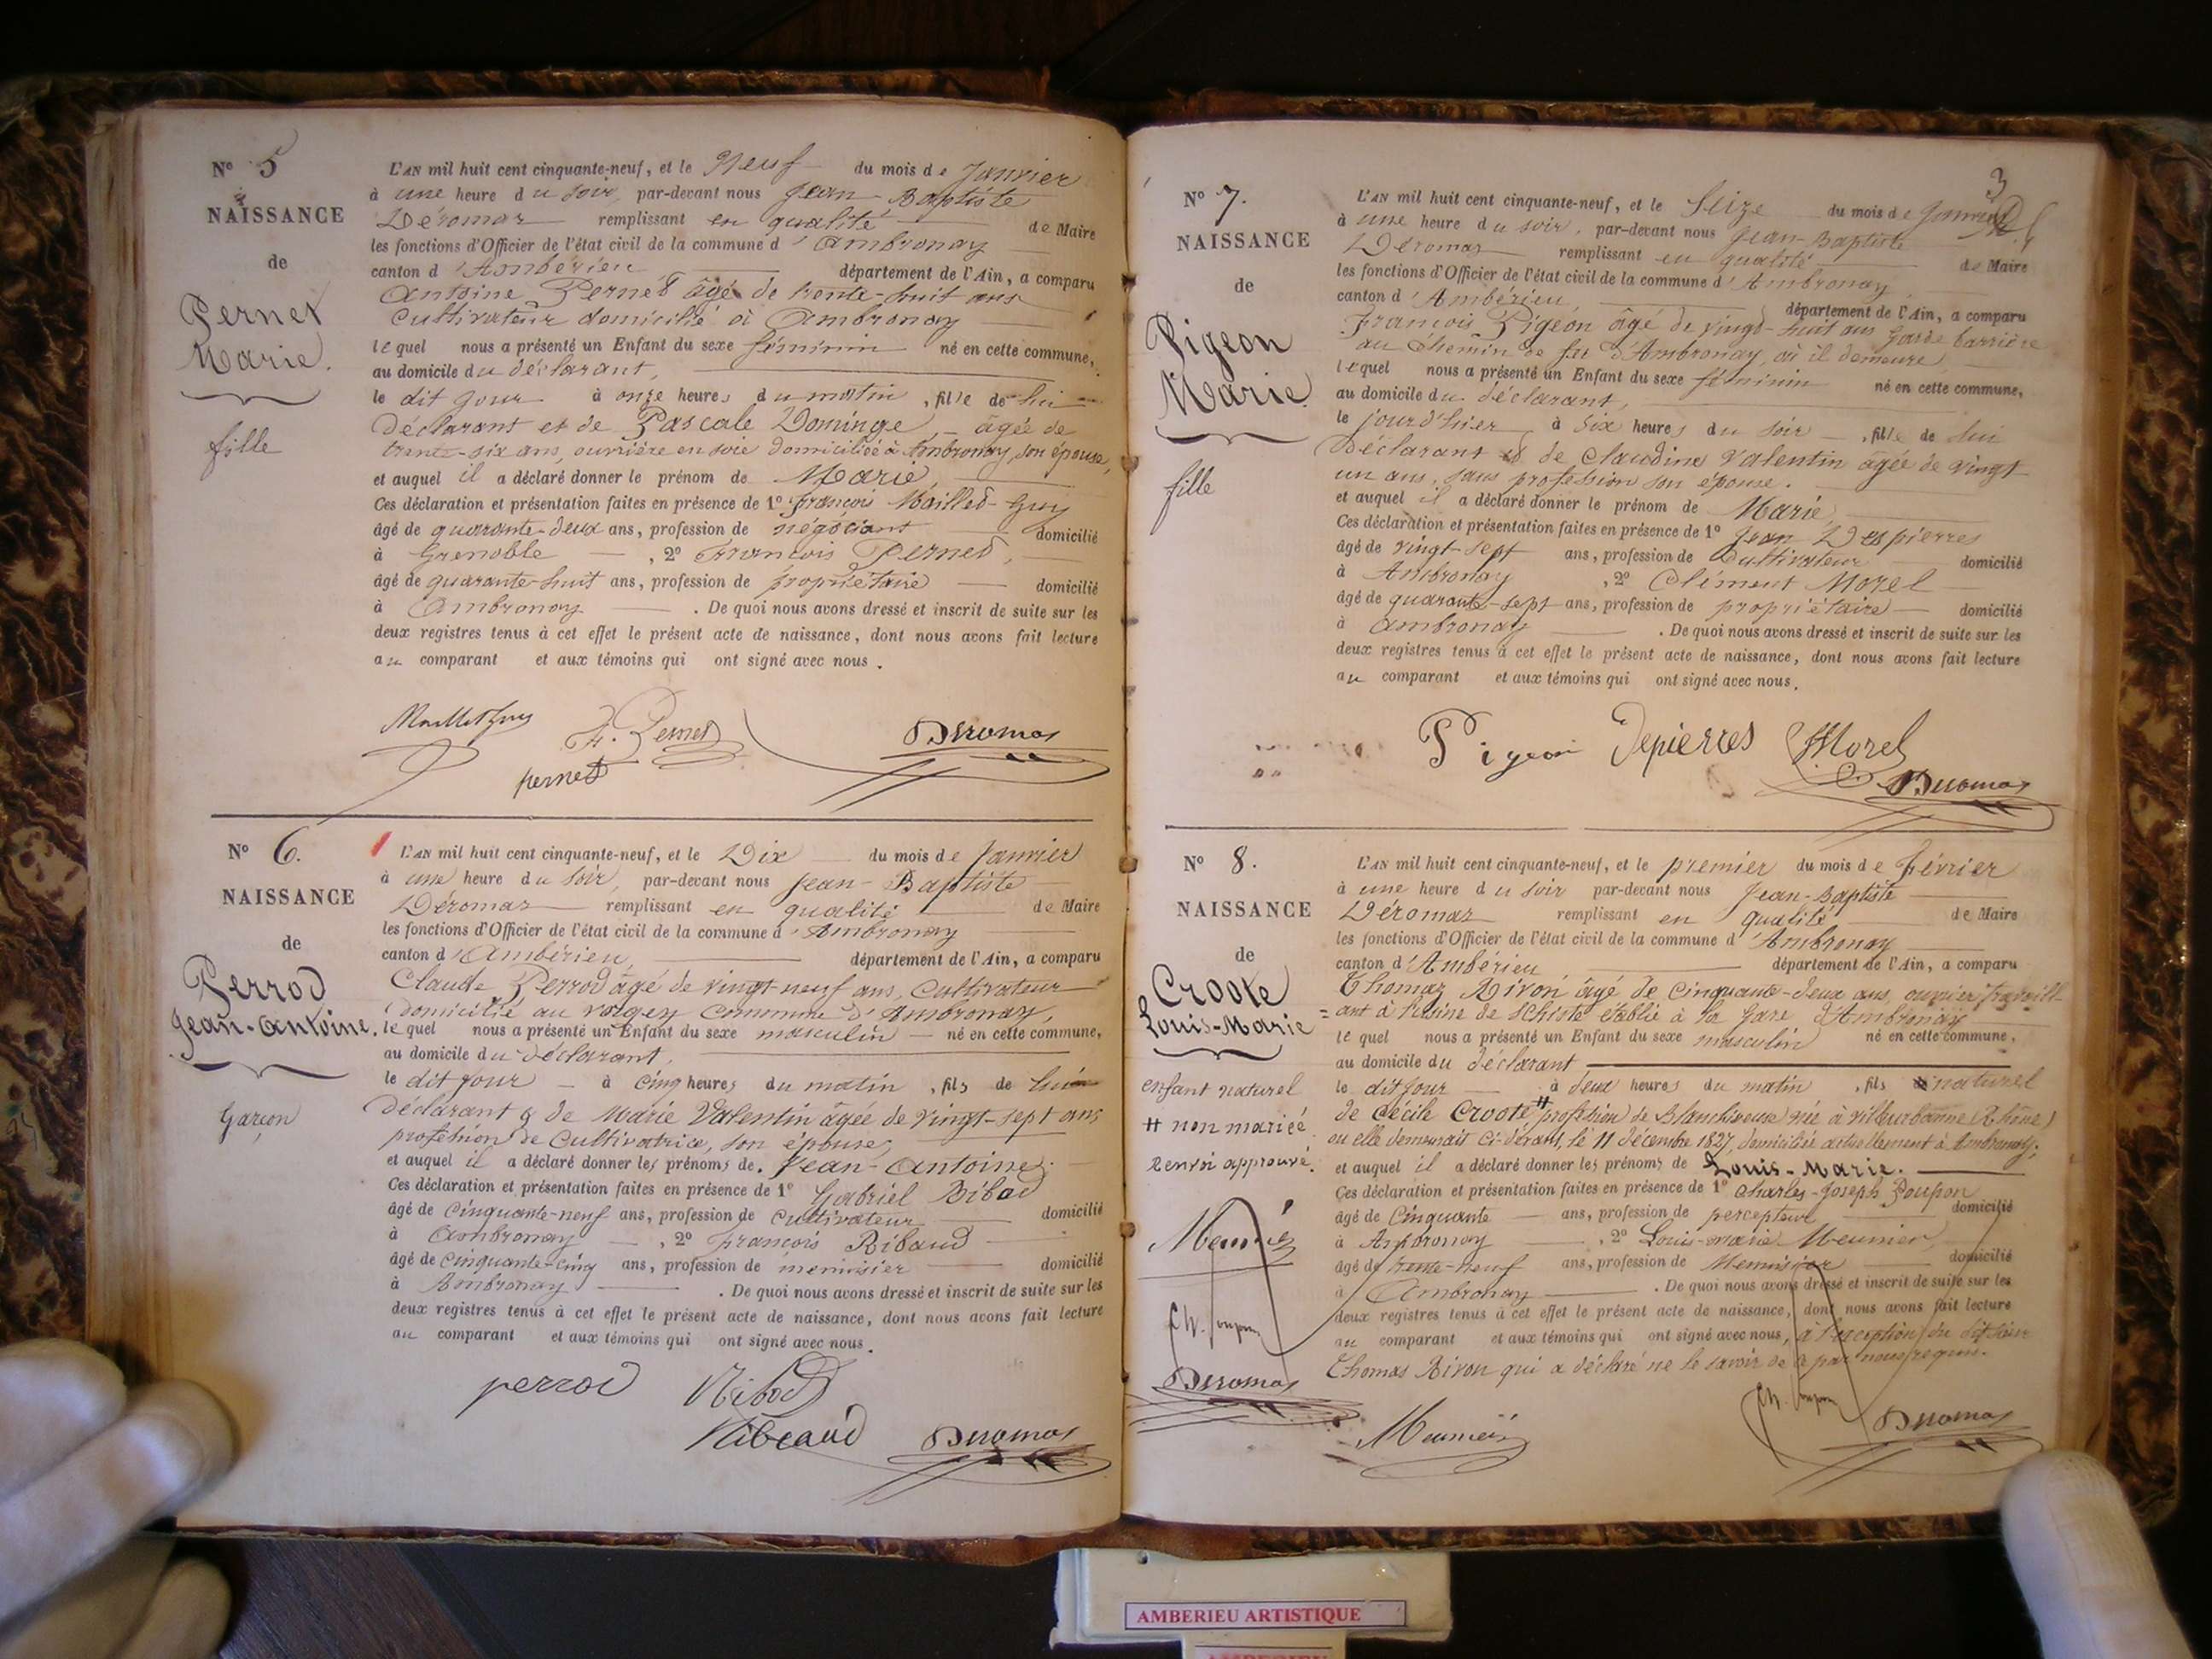 N° 5
NAISSANCE
de
Pernet
Marie.
fille
L'AN mil huit cent cinquante-neuf, et le Neuf du mois de Janvier
à une heure du soir, par-devant nous Jean-Baptiste
Déromas remplissant en qualité de Maire
les fonctions d'Officier de l'état civil de la commune d'Ambronay
canton d'Ambérieu département de l'Ain, a comparu
Antoine Pernet âgé de trente-huit ans
cultivateur domicilié à Ambronay
lequel nous a présenté un Enfant du sexe féminin né en cette commune,
au domicile du déclarant,
le dit jour à onze heures du matin, fille de lui
déclarant et de Pascale Dominge, âgée de
trente-six ans, ouvrière en soie domiciliée à Ambronay, son épouse,
et auquel il a déclaré donner le prénom de Marie,
Ces déclaration et présentation faites en présence de 1° François Maillet-Guy
âgé de quarante-deux ans, profession de négociant domicilié
à Grenoble, 2° François Pernet,
âgé de quarante-huit ans, profession de propriétaire domicilié
à Ambronay. De quoi nous avons dressé et inscrit de suite sur les
deux registres tenus à cet effet le présent acte de naissance, dont nous avons fait lecture
au comparant et aux témoins qui ont signé avec nous.
Maillet Guy F. Pernet Déromas
pernet
N° 6.
NAISSANCE
de
Perrod
Jean-Antoine.
Garçon
L'AN mil huit cent cinquante-neuf, et le Dix du mois de Janvier
à une heure du soir, par-devant nous Jean-Baptiste
Déromas remplissant en qualité de Maire
les fonctions d'Officier de l'état civil de la commune d'Ambronay
canton d'Ambérieu, département de l'Ain, a comparu
Claude Perrod âgé de vingt-neuf ans, cultivateur
domicilié au commune d'Ambronay,
lequel nous a présenté un Enfant du sexe masculin né en cette commune,
au domicile du déclarant,
le dit jour à cinq heures du matin, fils de lui
déclarant & de Marie Valentin âgée de vingt-sept ans
profession de cultivatrice, son épouse,
et auquel il a déclaré donner les prénoms de Jean-Antoine.
Ces déclaration et présentation faites en présence de 1° Gabriel Ribod
âgé de cinquante-neuf ans, profession de cultivateur domicilié
à Ambronay, 2° François Ribaud
âgé de cinquante-cinq ans, profession de menuisier domicilié
à Ambronay. De quoi nous avons dressé et inscrit de suite sur les
deux registres tenus à cet effet le présent acte de naissance, dont nous avons fait lecture
au comparant et aux témoins qui ont signé avec nous.
perrod Ribod
Ribeaud Déromas
3
N° 7.
NAISSANCE
de
Pigeon
Marie.
fille
L'AN mil huit cent cinquante-neuf, et le Seize du mois de Janvier
à une heure du soir, par-devant nous Jean-Baptiste
Déromas remplissant en qualité de Maire
les fonctions d'Officier de l'état civil de la commune d'Ambronay
canton d'Ambérieu département de l'Ain, a comparu
François Pigeon âgé de vingt-huit ans garde barrière
au chemin de fer d'Ambronay, où il demeure
lequel nous a présenté un Enfant du sexe féminin né en cette commune,
au domicile du déclarant,
le jour d'hier à six heures du soir, fille de lui
déclarant & de Claudine Valentin âgée de vingt
un ans, sans profession son épouse.
et auquel il a déclaré donner le prénom de Marie,
Ces déclaration et présentation faites en présence de 1° Jean Despierres
âgé de vingt-sept ans, profession de cultivateur domicilié
à Ambronay, 2° Clément Morel
âgé de quarante-sept ans, profession de propriétaire domicilié
à Ambronay. De quoi nous avons dressé et inscrit de suite sur les
deux registres tenus à cet effet le présent acte de naissance, dont nous avons fait lecture
au comparant et aux témoins qui ont signé avec nous.
Pigeon Depierres Morel
Déromas
N° 8.
NAISSANCE
de
Croote
Louis-Marie
enfant naturel
# non mariée
Renvoi approuvé.
Meunier
Ch. Poupon
Déromas
L'AN mil huit cent cinquante-neuf, et le premier du mois de Février
à une heure du soir par-devant nous Jean-Baptiste
Déromas remplissant en qualité de Maire
les fonctions d'Officier de l'état civil de la commune d'Ambronay
canton d'Ambérieu département de l'Ain, a comparu
Thomas Rivon âgé de cinquante-deux ans, ouvrier travaill-
=ant à l'usine de schiste établie à la gare d'Ambronay
lequel nous a présenté un Enfant du sexe masculin né en cette commune,
au domicile du déclarant
le dit jour à deux heures du matin, fils naturel
de Cécile Croote # profession de Blanchisseuse née à Villeurbanne (Rhône)
ou elle demeurait ci-devant, le 11 décembre 1827, domiciliée actuellement à Ambronay;
et auquel il a déclaré donner les prénoms de Louis-Marie.
Ces déclaration et présentation faites en présence de 1° Charles-Joseph Poupon
âgé de cinquante ans, profession de percepteur domicilié
à Ambronay, 2° Louis-Marie Meunier,
âgé de trente-neuf ans, profession de Menuisier domicilié
à Ambronay. De quoi nous avons dressé et inscrit de suite sur les
deux registres tenus à cet effet le présent acte de naissance, dont nous avons fait lecture
au comparant et aux témoins qui ont signé avec nous, à l'exception du dit sieur
Thomas Rivon qui a déclaré ne le savoir de ce par nous requis.
Meunier Ch. Poupon Déromas
AMBERIEU ARTISTIQUE